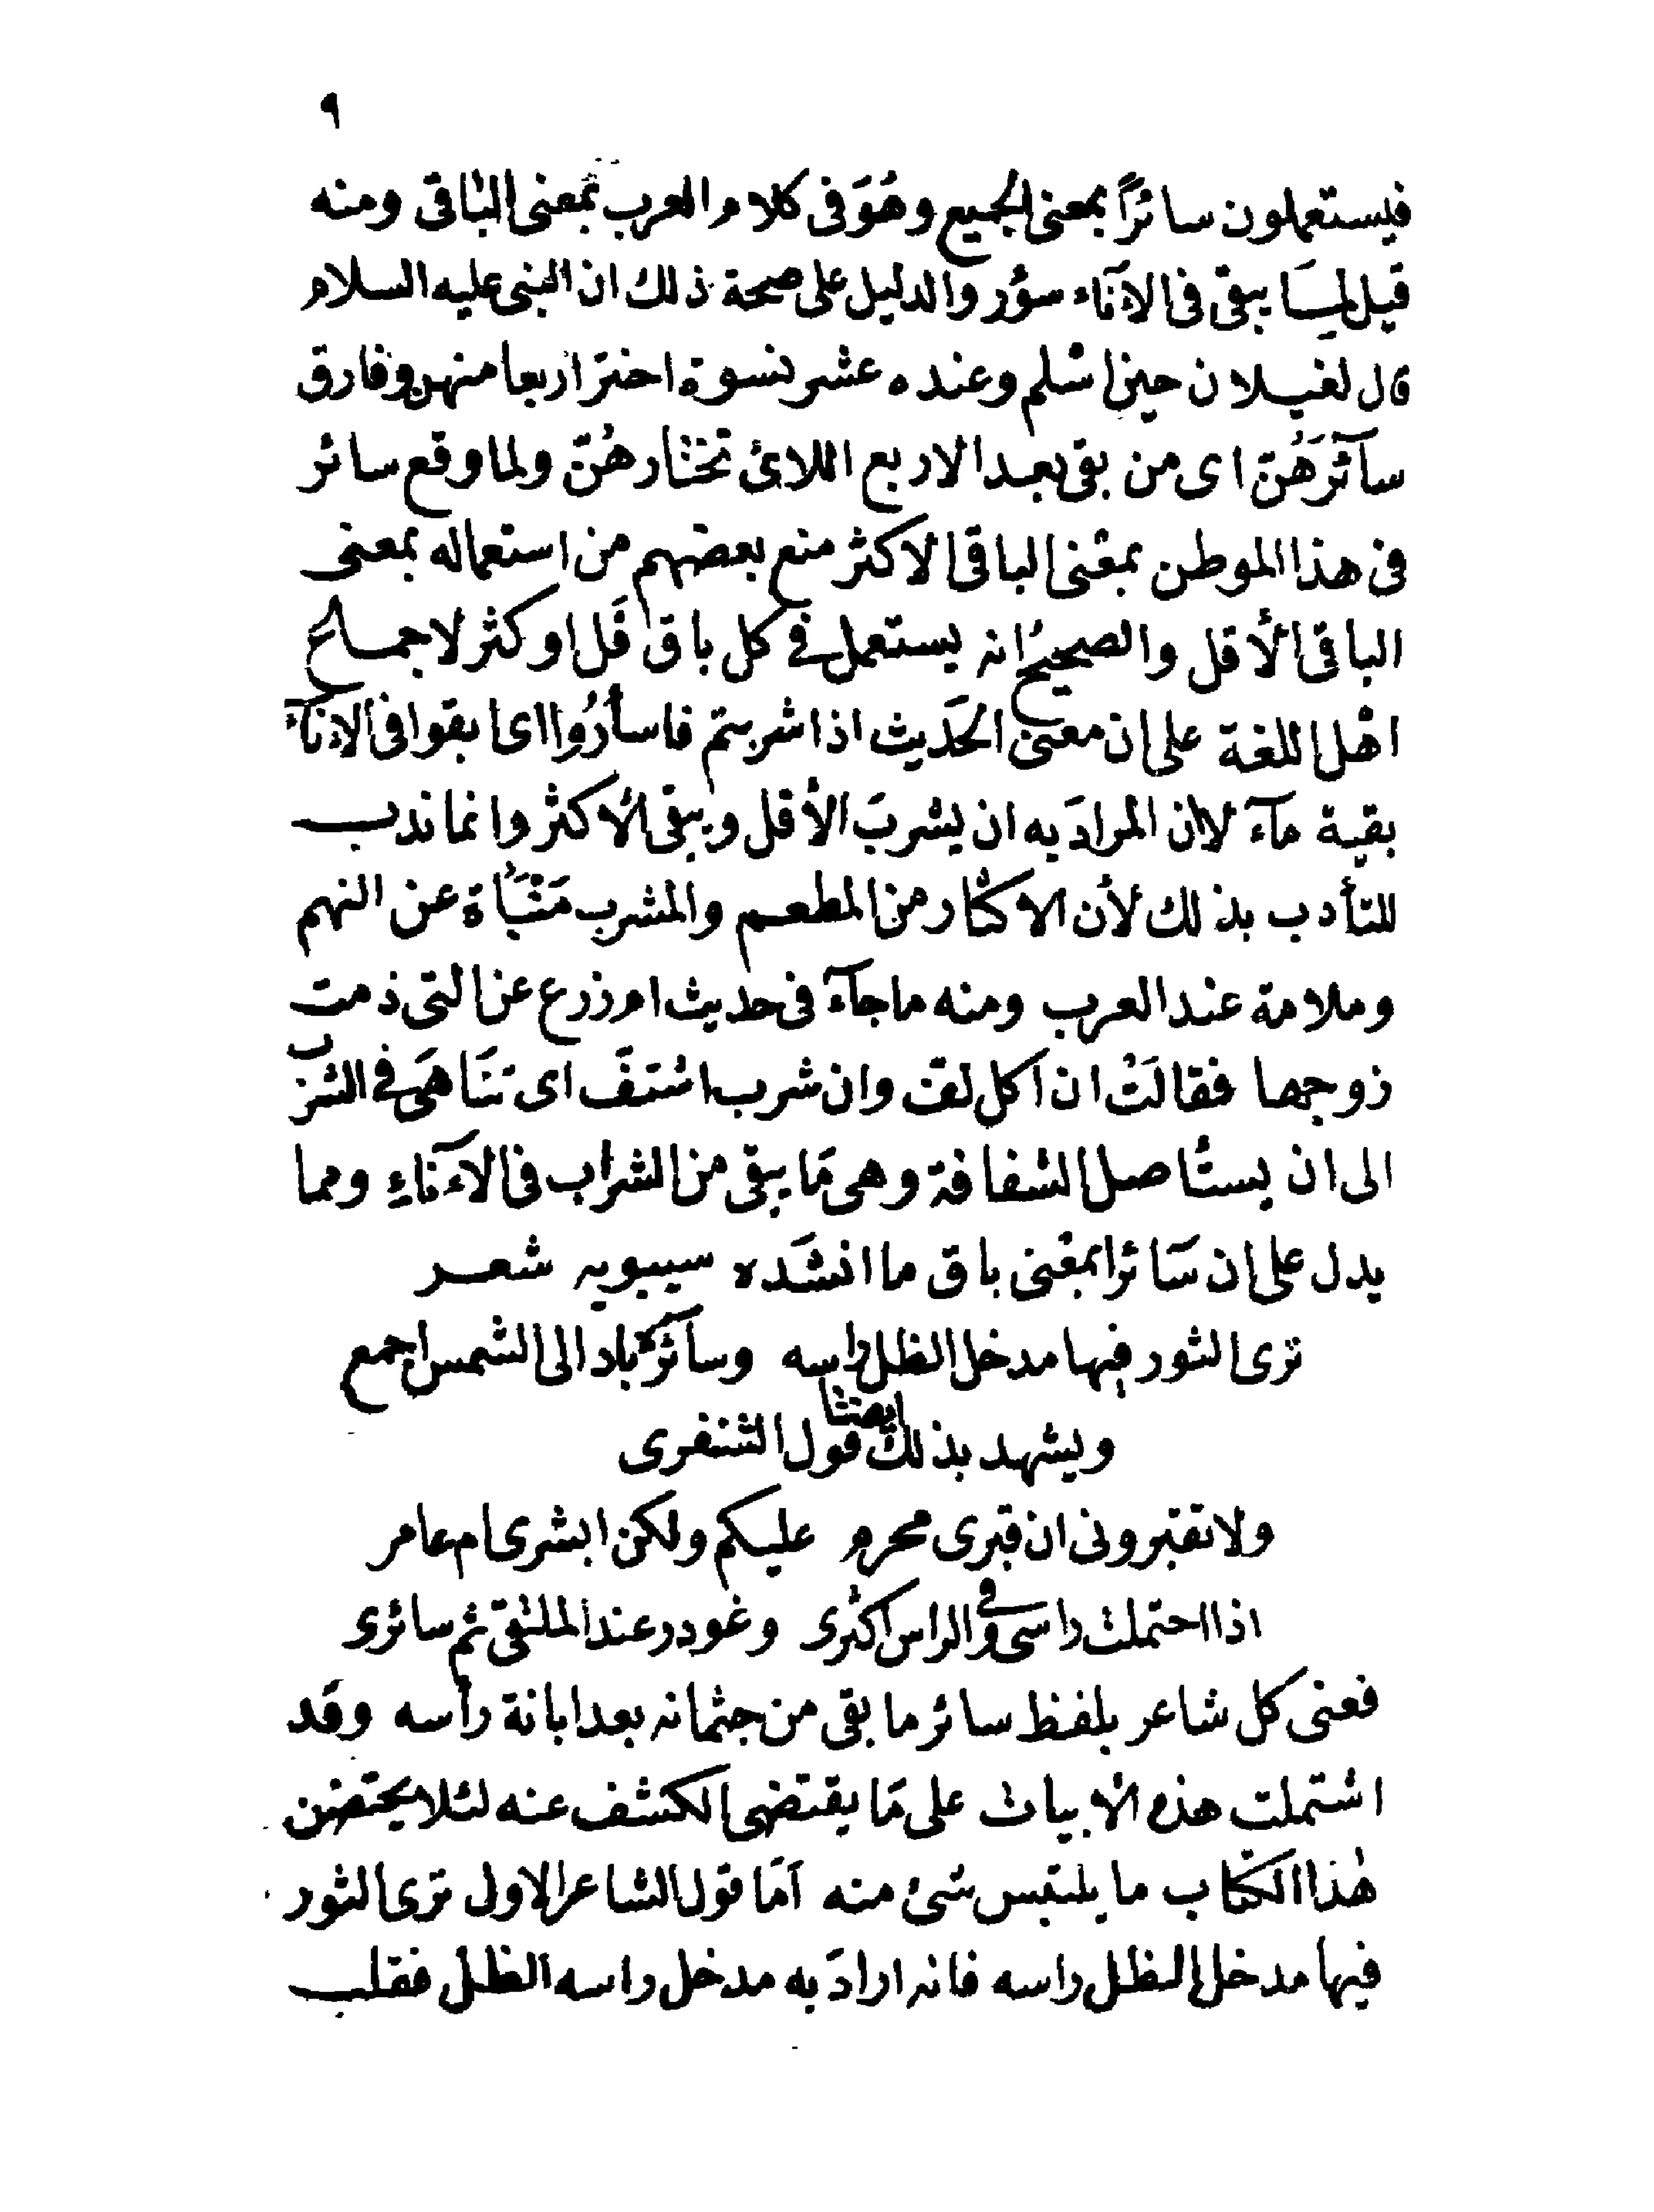 ٩
فيستعملون سائرًا بمعنى الجميع وهُوَ فى كلام العرب بمعنى الباقى ومنه
قيل لمِـَا يبقى فى الاَنَاء سؤر والدليل على صحة ذلك ان النبى عليه السلام
قال لغيلان حين اسْلم وعنده عشر نسوة اخترَ اربعا منهن وفارق
سآئرَهُنّ اى من بقى بعد الاربع اللائى تختارهُنّ ولما وقع سائر
فى هذا الموطن بمعْنى الباقى الاكثر منع بعضهم من استعماله بمعنى
الباقى الأقل والصحيحُ انه يستعمل فى كل باق قَل او كثر لاجماع
اهْل اللغة على ان معْنى الحَديث اذا شربتم فاسأرُوا اى ابقوا فى الاناَء
بقية مآء لا ان المرادَ به ان يشربَ الأقل ويبقى الأكثر وانما ندب
للتأدب بذلك لأن الاكثار من المطعم والمشرب مَنْبَأة عن النهم
وملامة عند العرب ومنه ما جآءَ فى حديث ام زرع عن التى ذمت
زوجها فقالَتْ ان اكل لف وان شرب اشتفَّ اى تنَاهَى فى الشرب
الى ان يستأصل الشفافة وهى مَا يبقى من الشراب فى الاَنَاءِ ومما
يدل على ان سَائرا بمعْنى باق ما انشَده سيبويه شعر
ترى الثور فيها مدخل الظل راسه وسائرُه باد الى الشمس اجمع
ويشهد بذلك ايضا قول الشنفرى
ولا تقبرونى ان قبرى محرم عليكم ولكن ابشرى ام عامر
اذا احتملت راسى وفى الراس اكثرى وغودر عند الملتقى ثم سائرى
فعنى كل شاعر بلفظ سائر ما بقى من جثمانه بعد ابانة رأسه وقد
اشتملت هذه الأبيات على مَا يقتضى الكشف عنه لئلا يحتضن
هٰذا الكتاب ما يلتبس شئ منه اَمّا قول الشاعر الاول ترى الثور
فيها مدخل الظل راسه فانه ارادَ به مدخل راسه الظل فقلب